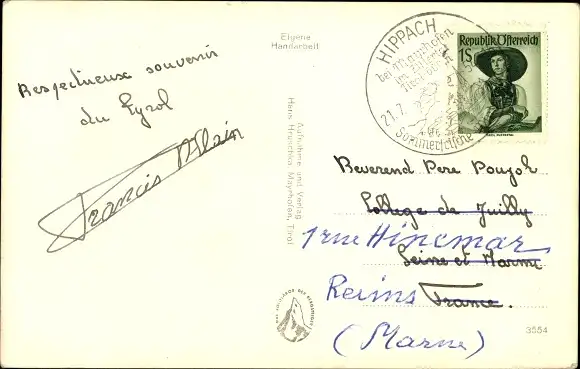 Respectueux souvenir
du Tyrol
Francis Alain
Eigene
Handarbeit
Aufnahme und Verlag
Hans Hruschka Mayrhofen, Tirol
HIPPACH
bei Mayrhofen
im Zillertal
Tirol
21.7.
Sommerfrische
Republik Österreich
1S
Reverend Pere Poujol
College de Juilly
1 rue Hincmar
Seine et Marne
Reims France.
(Marne)
3554